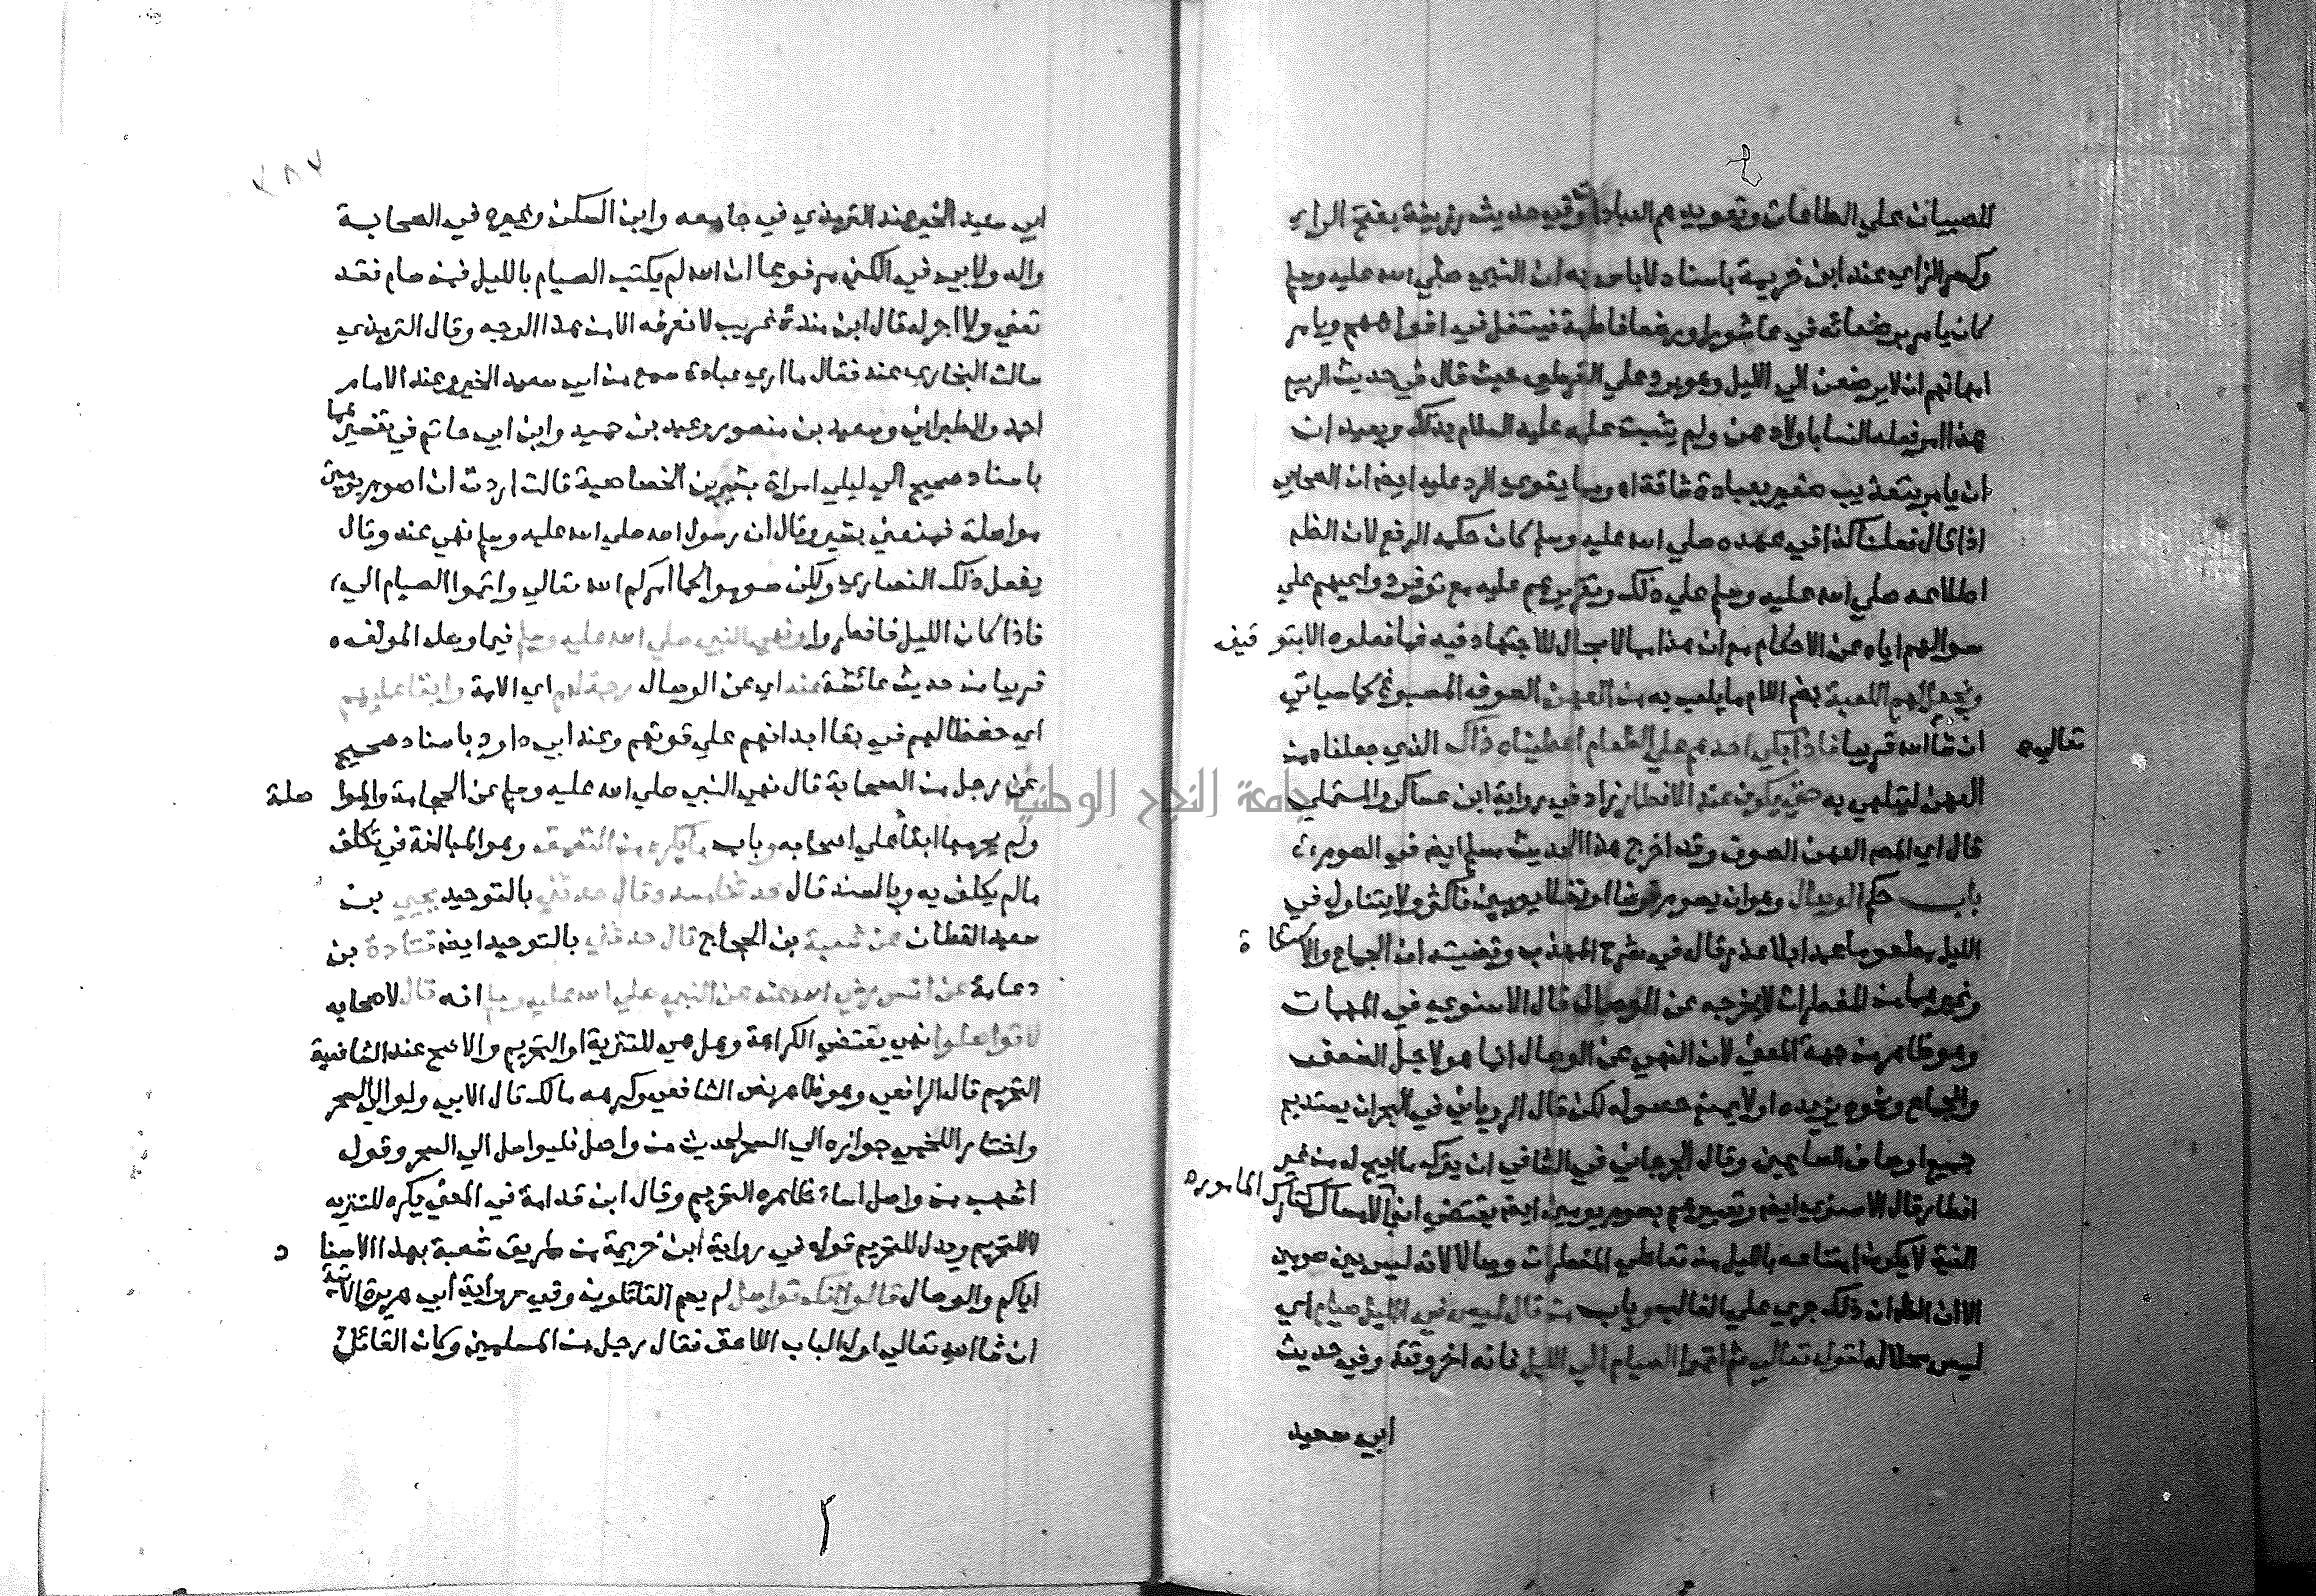 للصبيان علي الطاعات وتعويدهم العبادات وفي حديث رزينة بفتح الراي
وكسر الزاي عند ابن خزيمة باسناد لاباس به ان النبي صلي الله عليه وسلم
كان يامر برضعائه في عاشورا ورضعا فاطمة فيتفل في افواههم ويامر
امهاتهم ان لا يرضعن الي الليل وهو يرد علي القرطبي حيث قال في حديث الربيع
هذا امر فعله النسا باولادهن ولم يثبت علمه عليه السلام بذلك وبعيد ان
ان يامر بتعذيب صغير بعبادة شاقة اه ومما يقوي الرد عليه ايضا ان الصحابي
اذا قال فعلنا كذا في عهده صلي الله عليه وسلم كان حكمه الرفع لان الظاهر
اطلاعه صلي الله عليه وسلم علي ذلك وتقريرهم عليه مع توفر دواعيهم علي
سوالهم اياه عن الاحكام مع ان هذا مما لا مجال للاجتهاد فيه فما فعلوه الا بتوقيف
ونجعل لهم اللعبة بضم اللام ما يلعب به من العهن الصوف المصبوغ كما سياتي
ان شا الله تعالي قريبا فاذا بكي احدهم علي الطعام اعطيناه ذاك الذي جعلناه من
العهن ليتلهي به حتي يكون عند الافطار زاد في رواية ابن عساكر والمستملي
قال اي المص العهن الصوف وقد اخرج هذا الحديث مسلم ايضا في الصوم
باب حكم الوصال وهو ان يصوم فرضا او نفلا يومين فاكثر ولا يتناول في
الليل مطعوما عمدا بلا عذر قاله في شرح المهذب وقضيته ان الجماع والاستقاة
وغيرهما من المفطرات لا يخرجه عن الوصال قال الاسنوي في المهمات
وهو ظاهر من جهة المعني لان النهي عن الوصال انما هو لاجل الضعف
والجماع ونحوه يزيده او لا يمنع حصوله لكن قال الروياني في البحر ان يستديم
جميع اوصاف الصايمين وقال الجرجاني في الشافي ان يترك ما ابيح له من غير
افطار قال الاسنوي ايضا وتعبيرهم بصوم يومين ايضا يقتضي ان المامور بالامساك كتارك
النية لا يكون امتناعه بالليل من تعاطي المفطرات وصالا لانه ليس بين صومين
الا ان الظاهر ان ذلك جري علي الغالب وباب من قال ليس في الليل صيام اي
ليس محلا له لقوله تعالي ثم اتموا الصيام الي الليل فانه اخر وقته وفي حديث
ابي سعيد
٢٨٧
ابي سعيد الخير عند الترمذي في جامعه وابن السكن وغيره في الصحابة
والدولابي في الكني مرفوعا ان الله لم يكتب الصيام بالليل فمن صام فقد
تعني ولا اجر له قال ابن مندة غريب لا نعرفه الا من هذا الوجه وقال الترمذي
سالت البخاري عنه فقال ما اري عبادة سمع من ابي سعيد الخير وعند الامام
احمد والطبراني وسعيد بن منصور وعبد بن حميد وابن ابي حاتم في تفسيرهما
باسناد صحيح الي ليلي امراة بشير بن الخصاصية قالت اردت ان اصوم يومين
مواصلة فمنعني بشير وقال ان رسول الله صلي الله عليه وسلم نهي عنه وقال
يفعل ذلك النصاري ولكن صوموا كما امركم الله تعالي واتموا الصيام الي
فاذا كان الليل فافطروا ونهي النبي صلي الله عليه وسلم فيما وصله المولف
قريبا من حديث عائشة عنه اي عن الوصال رحمة لهم اي الامة وابقا عليهم
اي حفظا لهم في بقا ابدانهم علي قوتهم وعند ابي داود باسناد صحيح
عن رجل من الصحابة قال نهي النبي صلي الله عليه وسلم عن الحجامة والمواصلة
ولم يحرمهما ابقا علي اصحابه وباب ما يكره من التعمق وهو المبالغة في تكلف
مالم يكلف به وبالسند قال حدثنا مسدد قال حدثني بالتوحيد يحيي بن
سعيد القطان عن شعبة بن الحجاج قال حدثني بالتوحيد ايضا قتادة بن
دعامة عن انس رضي الله عنه عن النبي صلي الله عليه وسلم انه قال لاصحابه
لا تواصلوا نهي يقتضي الكراهة وهل هي للتنزيه او التحريم والاصح عند الشافعية
التحريم قال الرافعي وهو ظاهر نص الشافعي وكرهه مالك قال الابي ولو الي السحر
واختار اللخمي جوازه الي السحر لحديث من واصل فليواصل الي السحر وقول
اشهب من واصل اساء ظاهره التحريم وقال ابن قدامة في المغني يكره للتنزيه
لا للتحريم ويدل للتحريم قوله في رواية ابن خزيمة من طريق شعبة بهذا الاسناد
اياكم والوصال قالوا انك تواصل لم يسم القائلون وفي رواية ابي هريرة الاتية
ان شا الله تعالي اول الباب اللاحق فقال رجل من المسلمين وكان القائل
جامعة النجاح الوطنية